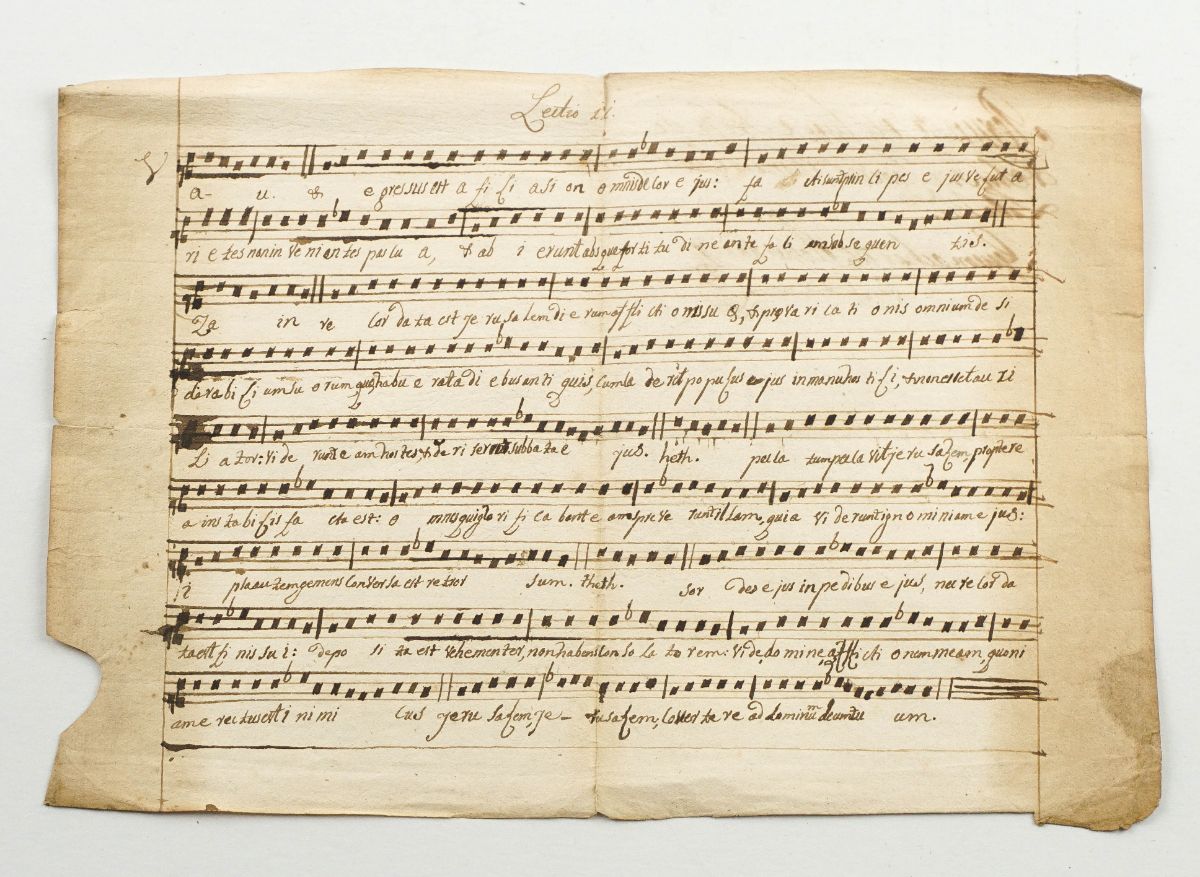 Lectio ii.
V a- u. & e gressus est a fi li a si on o mnis de cor e jus: fa cti sunt prin ci pes e jus ve lut a
ri e tes non in ve ni en tes pas cu a, & ab i e runt abs que for ti tu di ne an te fa ci em sub se quen tis.
Za in re cor da ta est je ru sa lem di e rum af fli cti o nis su æ, & præ va ri ca ti o nis omnium de si
de ra bi li um su o rum, quæ habu e rat a di e bus anti quis, cum ca de ret po pu lus e jus in manu hos ti li, & non esset au xi
li a tor: vi de runt e am hos tes, & de ri se runt sabba ta e jus. heth. pec ca tum pecca vit je ru sa lem, propte re
a ins ta bi lis fa cta est: o mnes qui glo ri fi ca bant e am spre ve runt il lam, qui a vi de runt ig no mi ni am e jus:
i psa au tem gemens conver sa est re tror sum. theth. sor des e jus in pe di bus e jus, nec re cor da
ta est fi nis su i: depo si ta est vehementer, non habens con so la to rem: vi de, do mi ne, af fli cti o nem me am, quo ni
am e rectus est i ni mi cus jeru sa lem, je- ru sa lem, conver te re ad dominũ deum tu um.